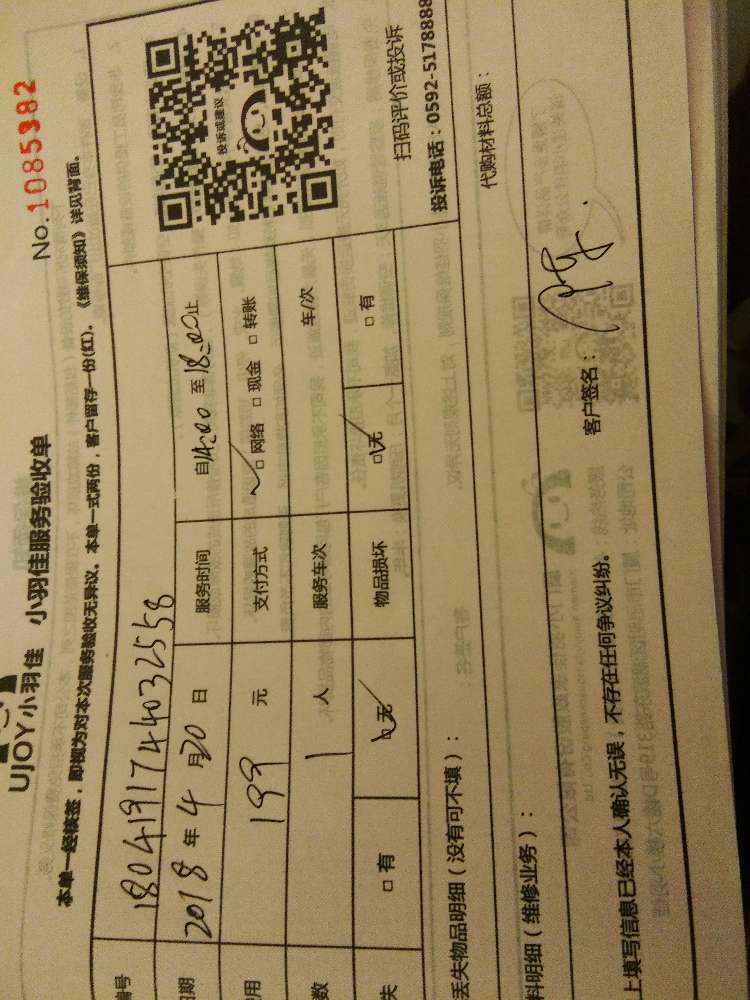 UJOY小羽佳 小羽佳服务验收单 No.1085382
本单一经核签，即视为对本次服务验收无异议。本单一式两份，客户留存一份(红)。《维保须知》详见背面。
编号 1804191744032558
日期 2018年4月20日 服务时间 自14:00至18:00止
费用 199元 支付方式 ☑网络 □现金 □转账
数 1人 服务车次 车/次
失 □有 ☑无 物品损坏 ☑无 □有
投诉或建议
扫码评价或投诉
投诉电话：0592-5178888
丢失物品明细（没有可不填）：
料明细（维修业务）： 代购材料总额：
上填写信息已经本人确认无误，不存在任何争议纠纷。 客户签名：